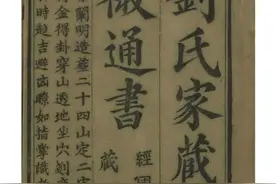 劉氏家藏
微通書
經
藏
闡明造葬二十四山定二
得金得卦穿山透地坐穴
時趨吉避凶瞭如指掌識